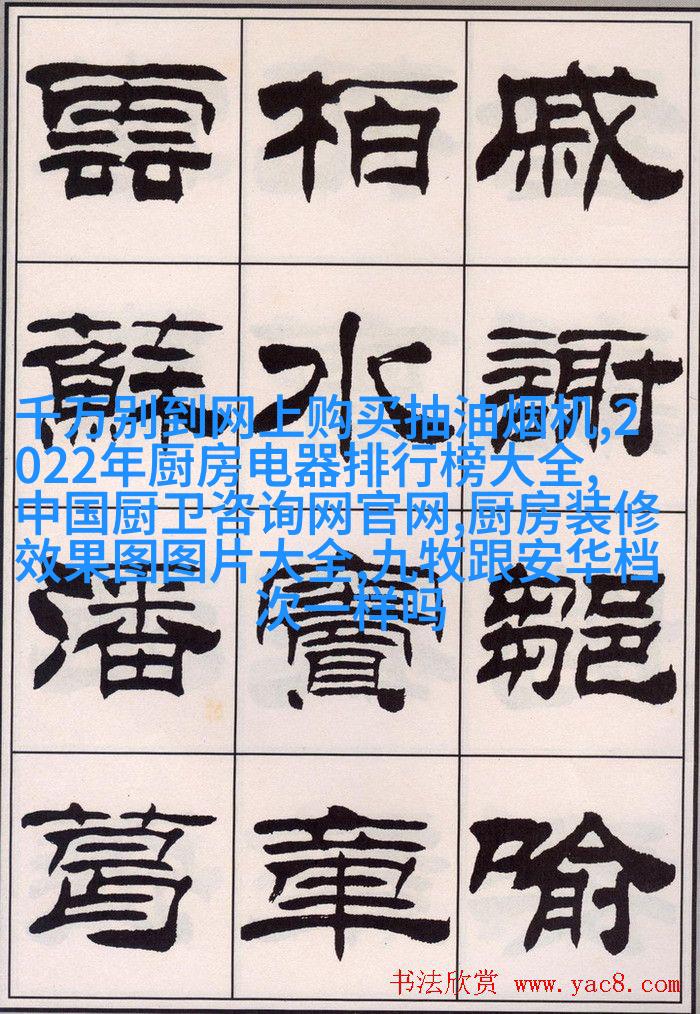 戚謝鄒喻
栢水竇章
雲蘇潘葛
千万别到网上购买抽油烟机,2
022年厨房电器排行榜大全,
中国厨卫咨询网官网,厨房装修
效果图图片大全,九牧跟安华档
次一样吗
书法欣赏 www.yac8.com